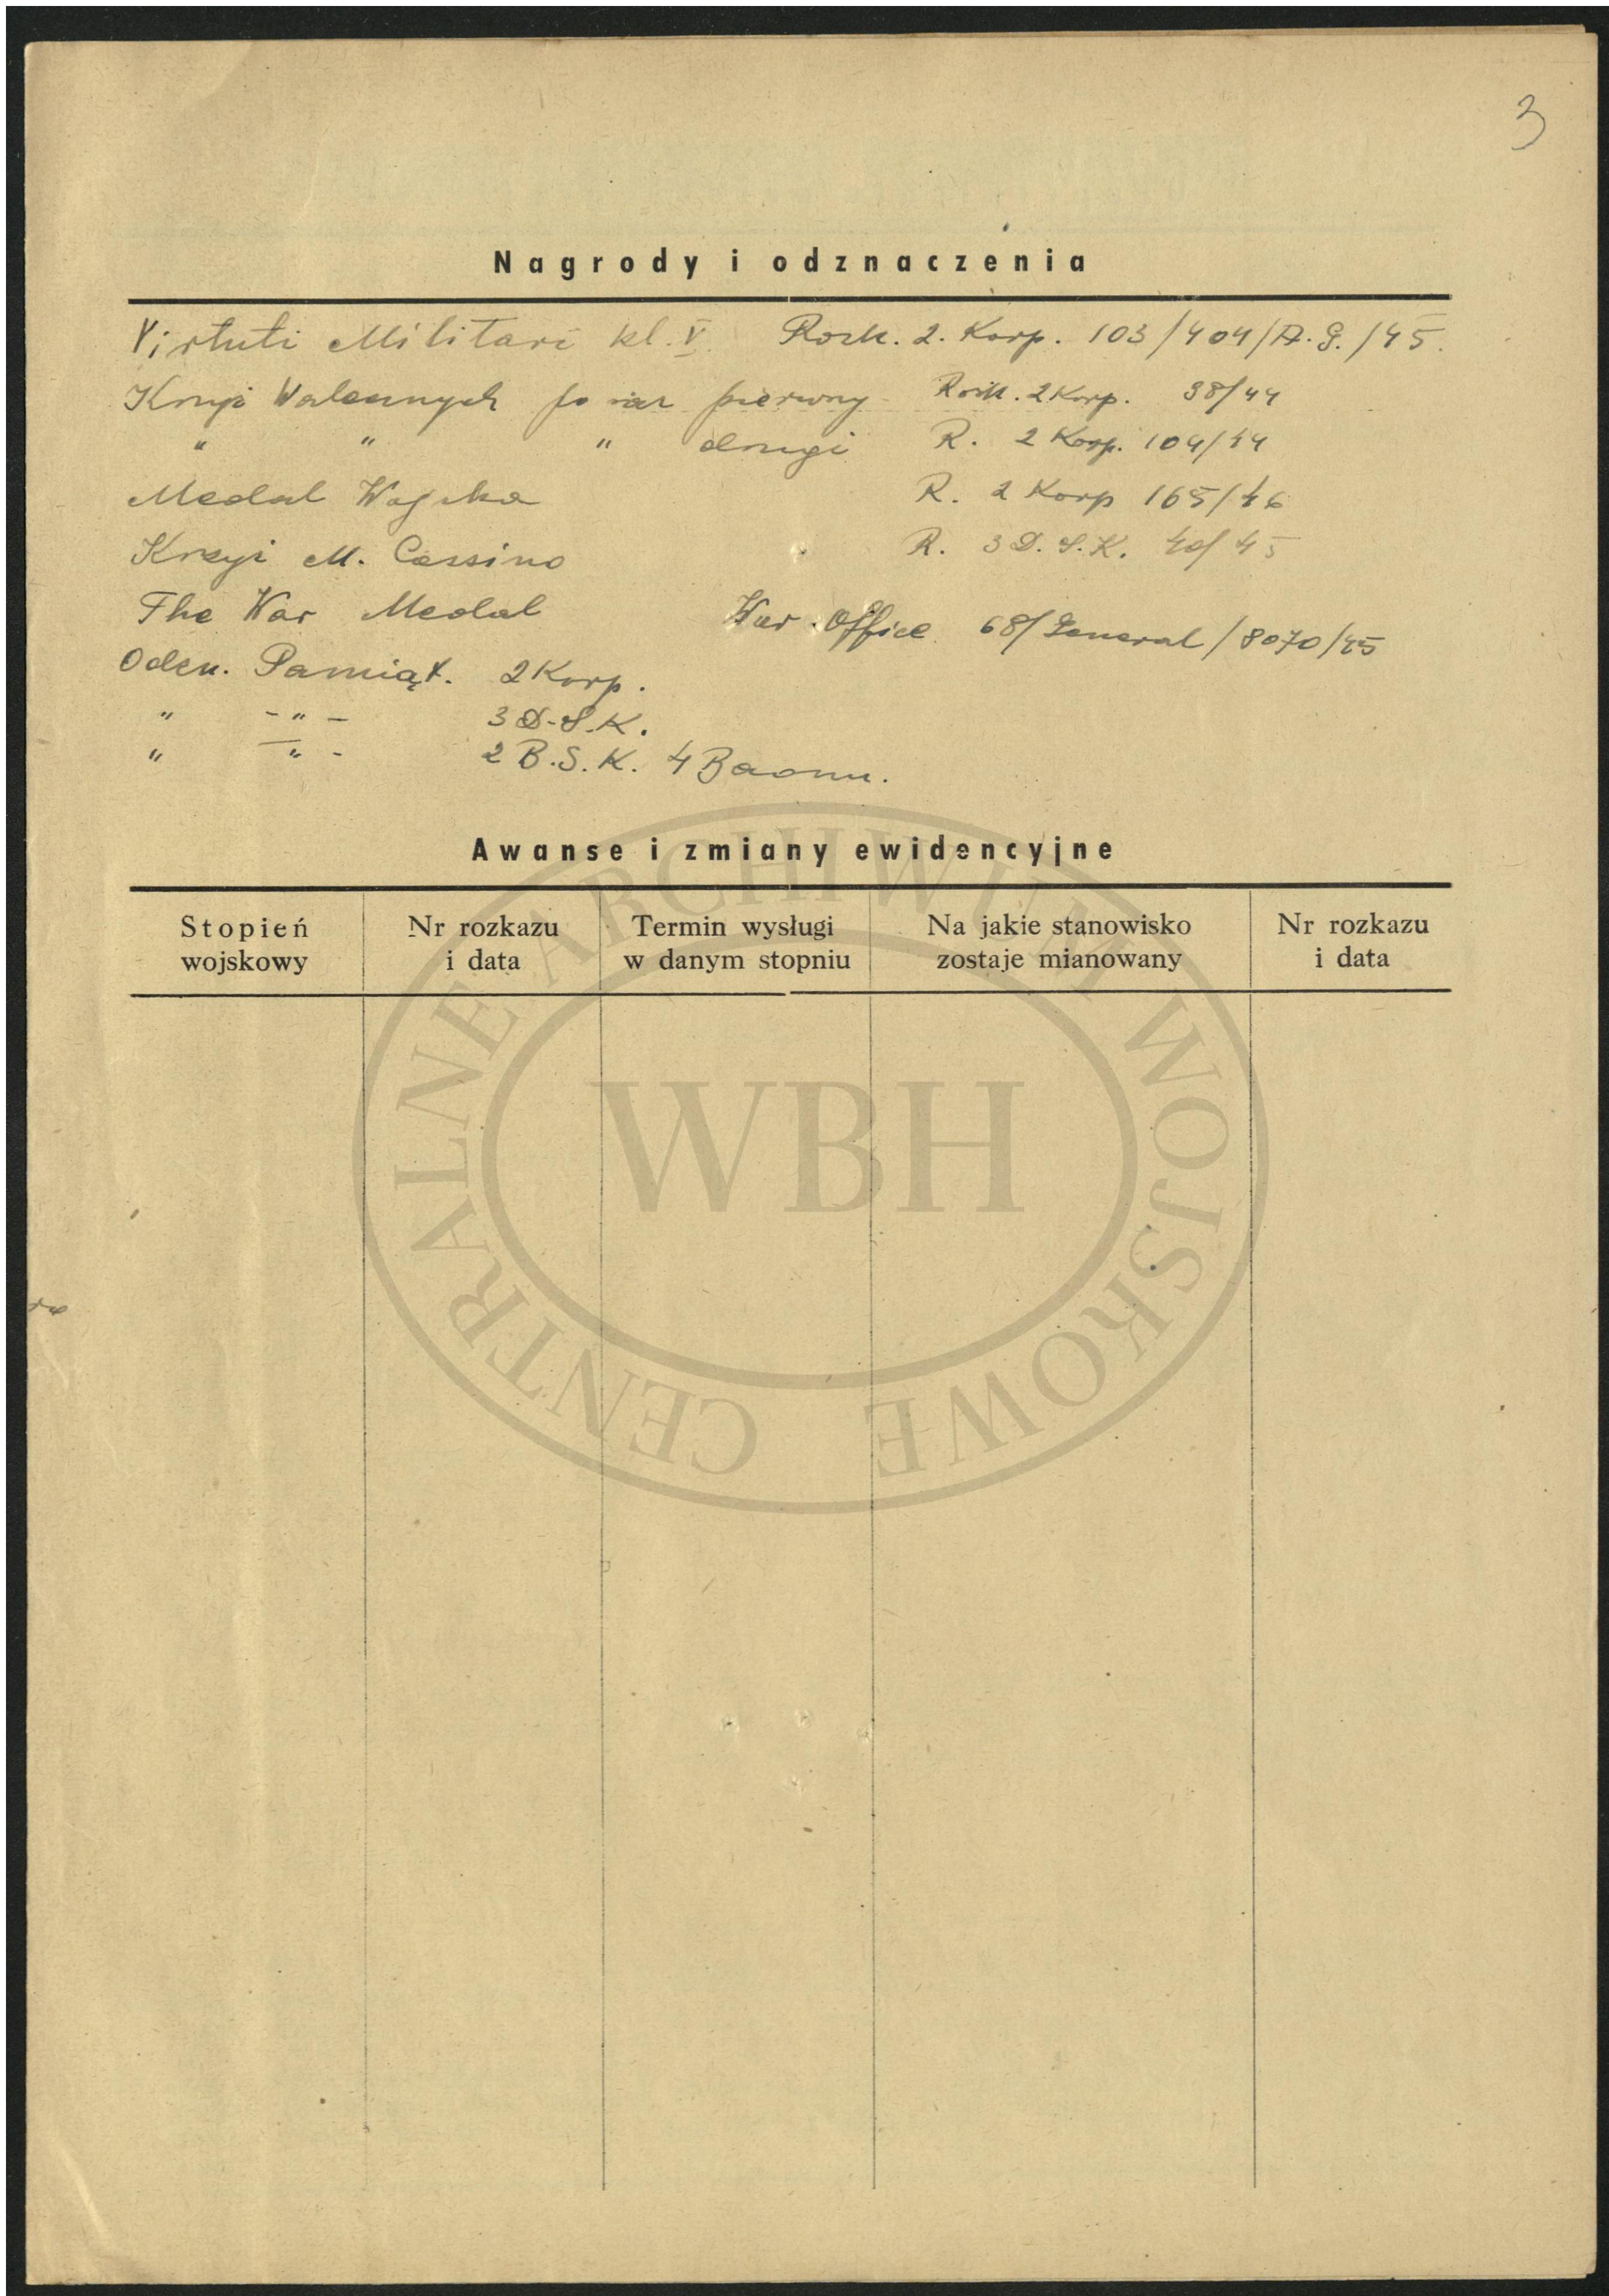 3
Nagrody i odznaczenia
Virtuti Militari kl. V. Rozk. 2. Korp. 103/404/A.G./45.
Krzyż Walecznych po raz pierwszy Rozk. 2 Korp. 38/44
" " " drugi R. 2 Korp. 104/44
Medal Wojska R. 2 Korp 165/46
Krzyż M. Cassino R. 3 D.S.K. 40/45
The War Medal War Office 68/General/8070/45
Odzn. Pamiąt. 2 Korp.
" - " - 3 D.S.K.
" - " - 2 B.S.K. 4 Baonu.
Awanse i zmiany ewidencyjne
Stopień wojskowy Nr rozkazu i data Termin wysługi w danym stopniu Na jakie stanowisko zostaje mianowany Nr rozkazu i data
CENTRALNE ARCHIWUM WOJSKOWE
WBH